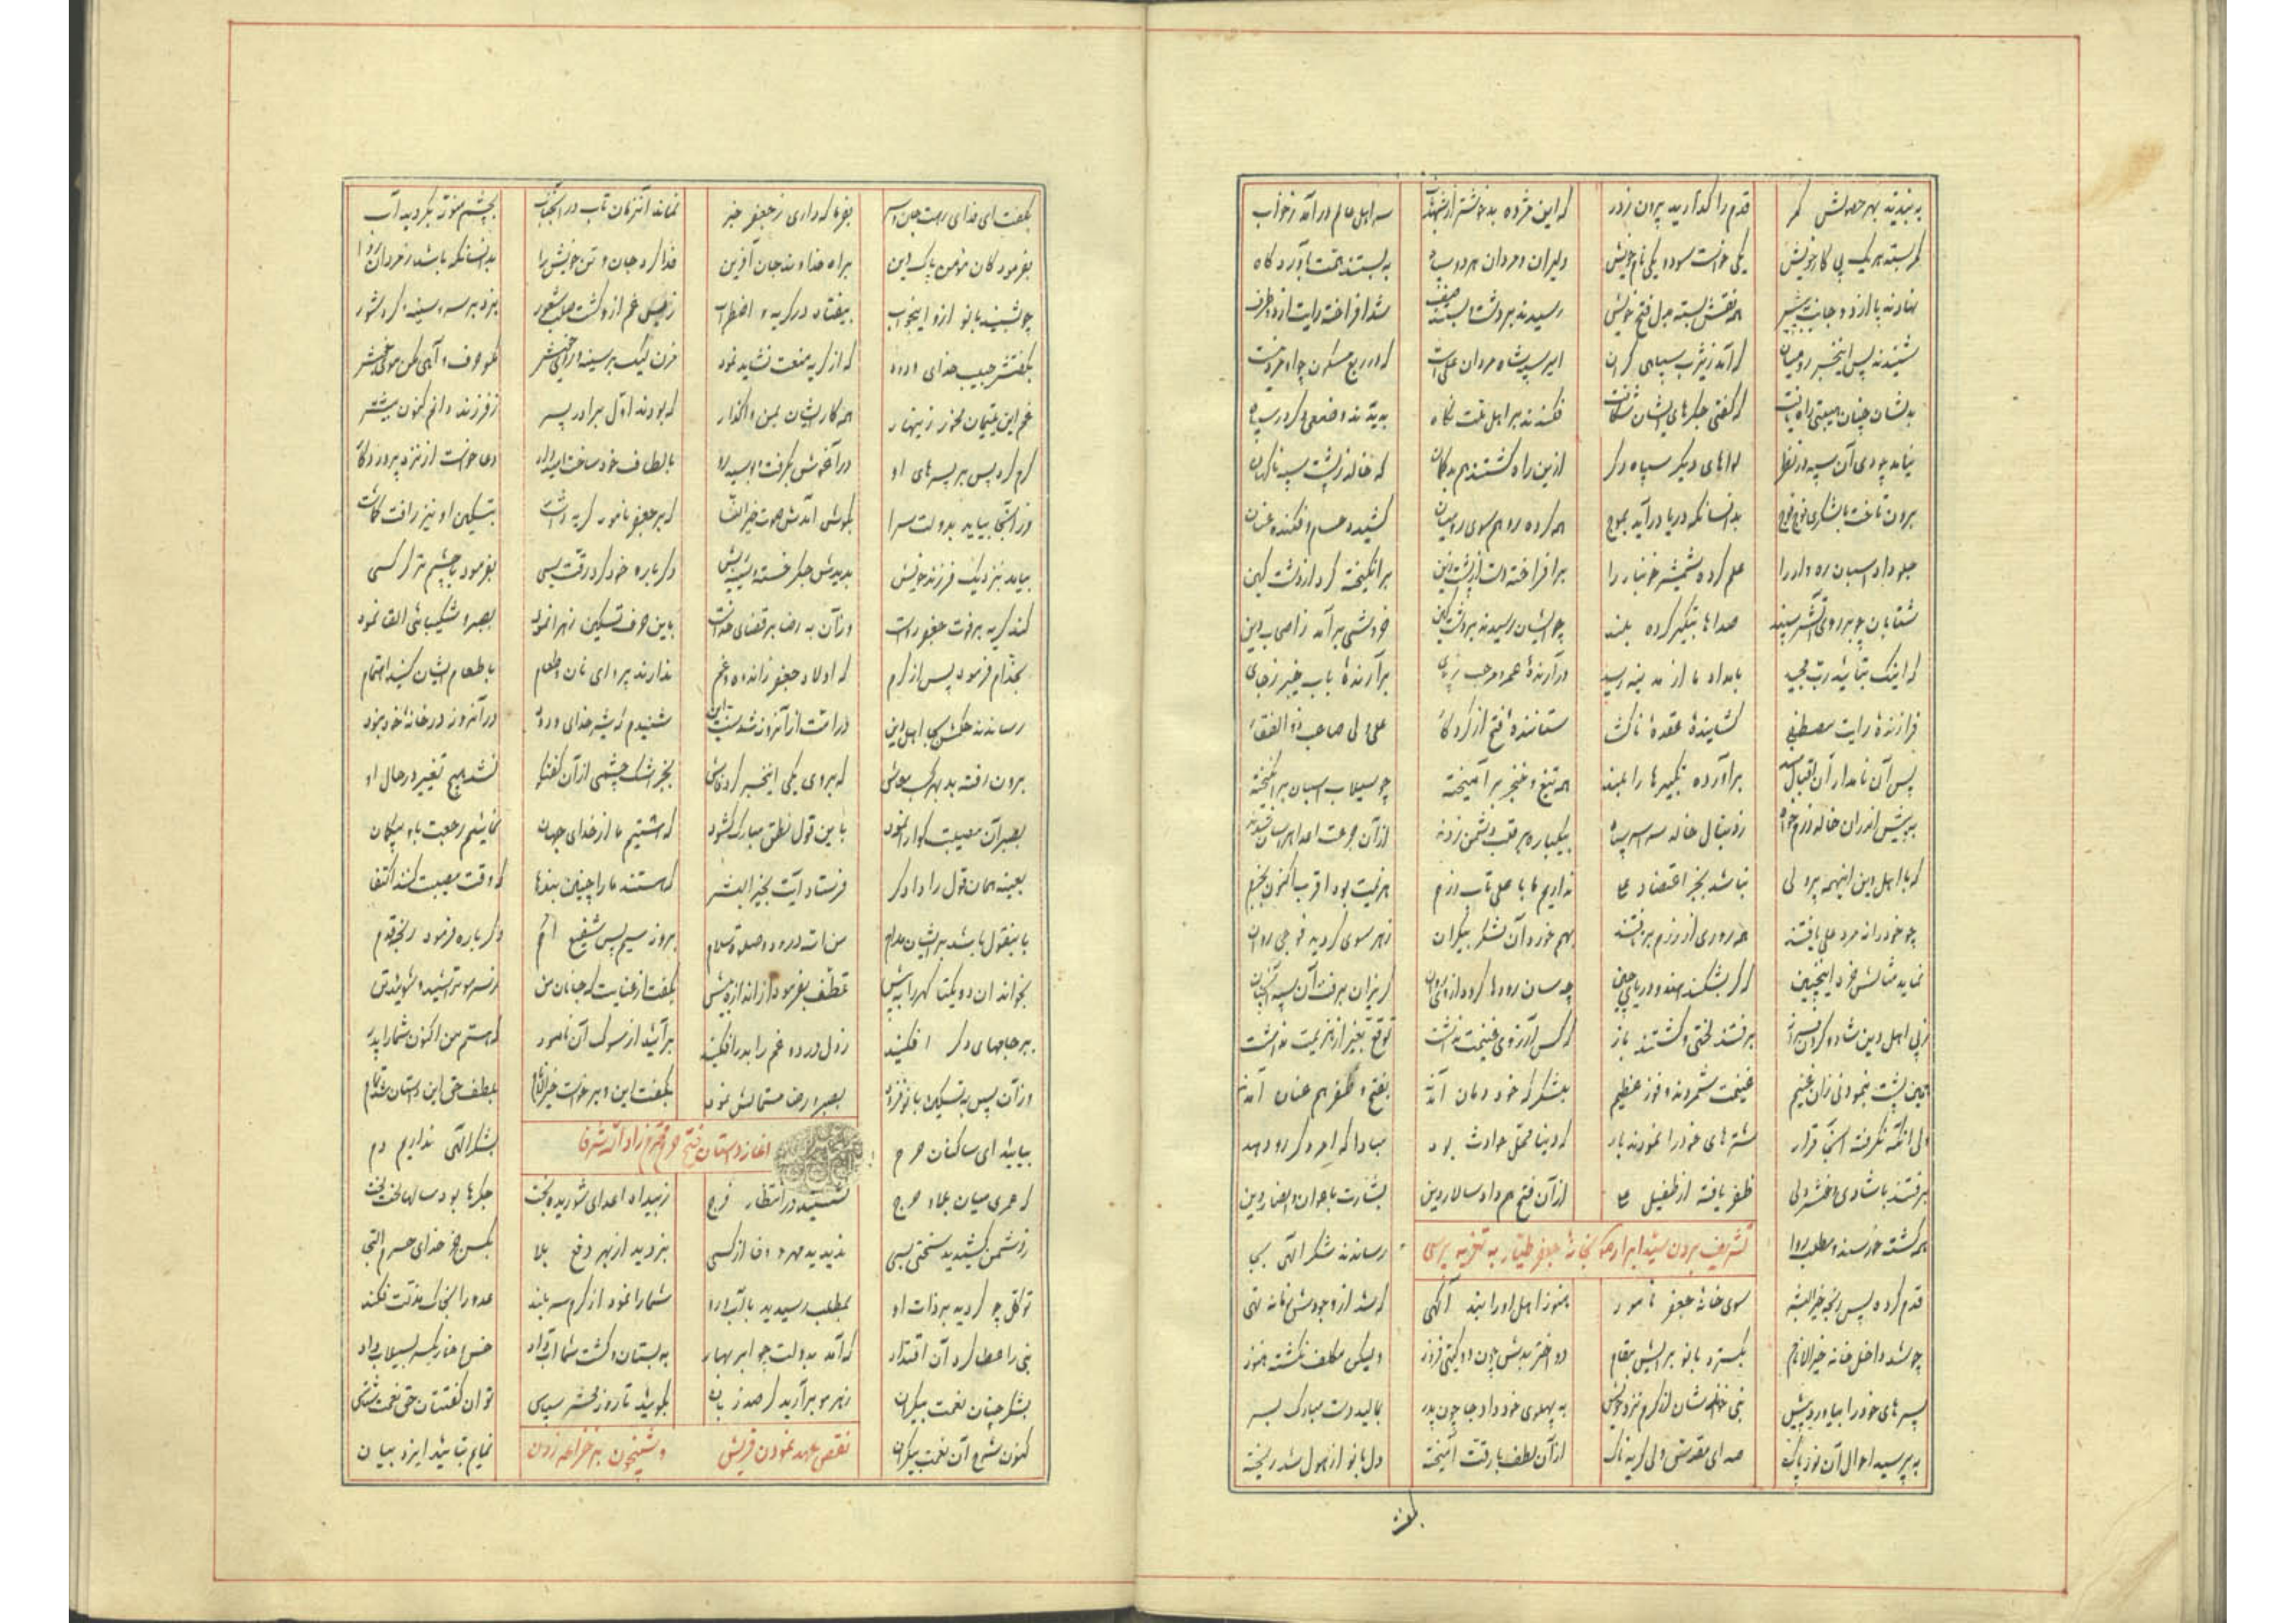 به بندید بهر حصولش کمر قدم را گذارید بیرون ز در که این مژده به خوشتر از سر اهل عالم در آمد ز خواب
کمر بسته هر یک پی کار خویش یکی خواست سود و یکی نام خویش دلیران و مردان هر دو سپاه به بستند همت به آوردگاه
نهادند پا از دو جانب به پیش همه نقش بسته بدل فتح خویش رسیدند بر دشت و بستند صف شد افراخته رایت از هر طرف
شنیدند پس اینخبر رومیان که آمد ز یثرب سپاهی گران امیر سپه شاه مردان علی است که در ربع مسکون چو او مرد نیست
بدیشان چنان هیبتی راه یافت که گفتی جگرهای ایشان شکافت فکندند بر اهل ملت نگاه به دیدند وضعی دگر در سپاه
نیامد چو دی آن سپه در نظر لواهای دیگر سپاه دگر ازین راه گشتند هم بدگمان که خالد ز پشت سپه ناگهان
برون تاخت با لشکری فوج فوج بدانسانکه دریا درآید بموج همه کرده رو هم سوی رومیان کشیده حسام و فکنده عنان
جلو داد اسپان ره وار را علم کرده شمشیر خونبار را برافراخته دست از پشت زین برانگیخته گرد از دشت کین
شتابان چو بر روی آتش سپند صداها بتکبیر کرده بلند چو ایشان رسیدند بر دشت کین خروشی برآمد ز اصحاب دین
که اینک بتائید رب مجید بامداد ما از مدینه رسید درآرندهٔ عمرو و مرحب ز پای برآرندهٔ باب خیبر ز جای
فرازندهٔ رایت مصطفی گشایندهٔ عقدهٔ ستانندهٔ فتح از کردگار علی ولی صاحب ذوالفقار
پس آن نامدار آن اقبالمند برآورده تکبیرها را بلند همه تیغ و خنجر برآمیخته چو سیلاب اسپان برانگیخته
به پیش اندران خالد رزم خواه ز دنبال خالد سراسر سپاه بیکباره بر قلب دشمن زدند از آن جرعت اعدا هراسان شدند
که با اهل دین اینهمه پر دلی نباشد بجز اعتضاد علی نداریم ما با علی تاب رزم هزیمت بود اقرب اکنون بحزم
چو خود را نه مرد علی یافتند همه روی از رزم بر تافتند بهم خورد آن لشکر بیکران ز هر سوی گردید فوجی روان
نماید مثالش خرد اینچنین که گر بشکند سد دریای چین چه سان رودها گردد از وی روان گریزان برفت آن سپه آنچنان
ز پی اهل دین شاد و گردن فراز برفتند لختی و گشتند باز که کس آرزوی غنیمت نداشت توقع بغیر از هزیمت نداشت
همین پشت بنمودنی زان غنیم غنیمت شمردند و فوز عظیم بیشکر که خود دمان آمدند بفتح و ظفر هم عنان آمدند
ولی آنکه نگرفته آنجا قرار شترهای خود را نمودند بار که دنیا محل حوادث بود مبادا که امر دگر رو دهد
برفتند با شادی و خوشدلی ظفر یافته از طفیل علی از آن فتح هم داد سالار دین بشارت باعوان و انصار دین
همه گشته خورسند و مطلب روا رساندند شکر الهی بجا
تشریف بردن سید ابرار بخانهٔ جعفر طیار به تعزیه پرسی
قدم کرده پس رنجه خیرالبشر سوی خانهٔ جعفر نامور هنوز اهل او را نبد آگهی که شد از وجودش خانه تهی
چو شد داخل خانه خیرالانام بگسترد بانو برایش مقام دو دختر بدش چون دو گیتی فروز ولیکن مکلف نگشته هنوز
پسرهای خود را بیاورد پیش نبی خواندشان از کرم نزد خویش به پهلوی خود داد جا چون پدر بمالید دست مبارک بسر
به پرسید احوال آن نور پاک صدای مقدس ولی گریه ناک از آن لطف با رقت آمیخته دل بانو از هول شد ریخته
بگفت
بگفت ای فدای رهت جان و سر بفرما که داری ز جعفر خبر نماند آنزمان تاب در آنجناب بچشم نبوت بگردید آب
بفرمود کان مؤمن پاک دین براه خداوند جان آفرین فدا کرد جان و تن خویش را بدانسانکه باشد ز مردان روا
چو بشنید بانو ازو اینجواب بیفتاد در گریه و اضطراب ز بس غم ازو گشت سلب شعور بزد بر سر و سینه کرد شور
بگفتش حبیب خدای ودود که از گریه منعت نشاید نمود مزن لیک بر سینه و رو مگو حرف و آهی مکن
غم این یتیمان مخور زینهار همه کار ایشان بمن واگذار که بودند اول برادر پسر ز فرزند دانم کنون بیشتر
کرم کرد پس بر پسرهای او در آغوش بگرفت و بوسید رو بالطاف خود ساخت امیدوار دعا خواست از نزد پروردگار
وز آنجا بیامد بدولت سرا بگوش آمدش صوت خیرالنسا که بر جعفر نامور گریه داشت بتسکین او نیز رافت گماشت
بیامد بنزدیک فرزند خویش بدیدش جگر خسته و سینه ریش دگر باره خود کرد رقت بسی بفرمود با چشم تر گر کسی
کند گریه بر فوت جعفر رواست وز آن به رضا بر قضای خداست باین حرف تسکین زهرا نمود بصبر و شکیبائی القا نمود
بخدام فرمود پس از کرم که اولاد جعفر ز اندوه و غم ندارند پروای نان و طعام باطعام ایشان کنید اهتمام
رساندند حکمش بجا اهل دین در امت از آنروز شد سنت این شنیدم که شیر خدای ودود در آنروز در خانهٔ خود نبود
برون رفته بد بهر کسب معاش که بر وی یکی اینخبر کرد فاش بجز اشک چشمی از آن گفتگو نشد هیچ تغییر در حال او
بصبر آن مصیبت گوارا نمود باین قول نطق مبارک گشود که هستیم ما از خدای جهان نمائیم رجعت باو بیگمان
بعینه همان قول را دادگر فرستاد آیت بخیرالبشر که هستند ما را چنین بندها که وقت مصیبت کنند اکتفا
باینقول باشد بر ایشان مدام من الله درود و صلوة و سلام بروز سیم پس شفیع امم دگر باره فرمود رنجه قدم
بخواند آن دو یکتا گهر را به پیش تعطف بفرمود از اندازه بیش بگفت از عنایت که جانان من ز سر مو تراشید و شوئید تن
ببر جامهای دگر افکنید ز دل درد و غم را بدر افکنید برآئید از سوگ آن نامور که هستم من اکنون شما را پدر
وز آن پس به تسکین بانو فزود بصبر و رضا مستمالش نمود بگفت این و برخاست خیرالانام بلطف حق این داستان شد تمام
آغاز داستان فتح حرم محترم زاد الله شرفا
بیائید ای ساکنان حرم بشکر الهی نداریم دم
که عمری میان بلا و حرج نشستید در انتظار فرج ز بیداد اعدای شوریده بخت جگرها بود سالها لخت لخت
ز دشمن کشیدید سختی بسی ندیدید مهر و وفا از کسی نبردید از بهر دفع بلا بکس جز خدای حرم التجا
توکل چو کردید بر ذات او بمطلب رسیدید با آبرو شما را نمود از کرم سربلند عدو را بخاک مذلت فکند
نبی را عطا کرد آن اقتدار که آمد بدولت چو ابر بهار به بستان و کشت شما آب داد خس و خار یکسر بسیلاب داد
بشکر چنان نعمت بیکران ز هر مو برآرید گر صد زبان بگوئید تا روز محشر سپاس توان گفتتان حق نعمت شناس
کنون شرح آن نعمت بیکران نمایم بتائید ایزد بیان
نقض عهد نمودن قریش و شبیخون بر خزاعه زدن